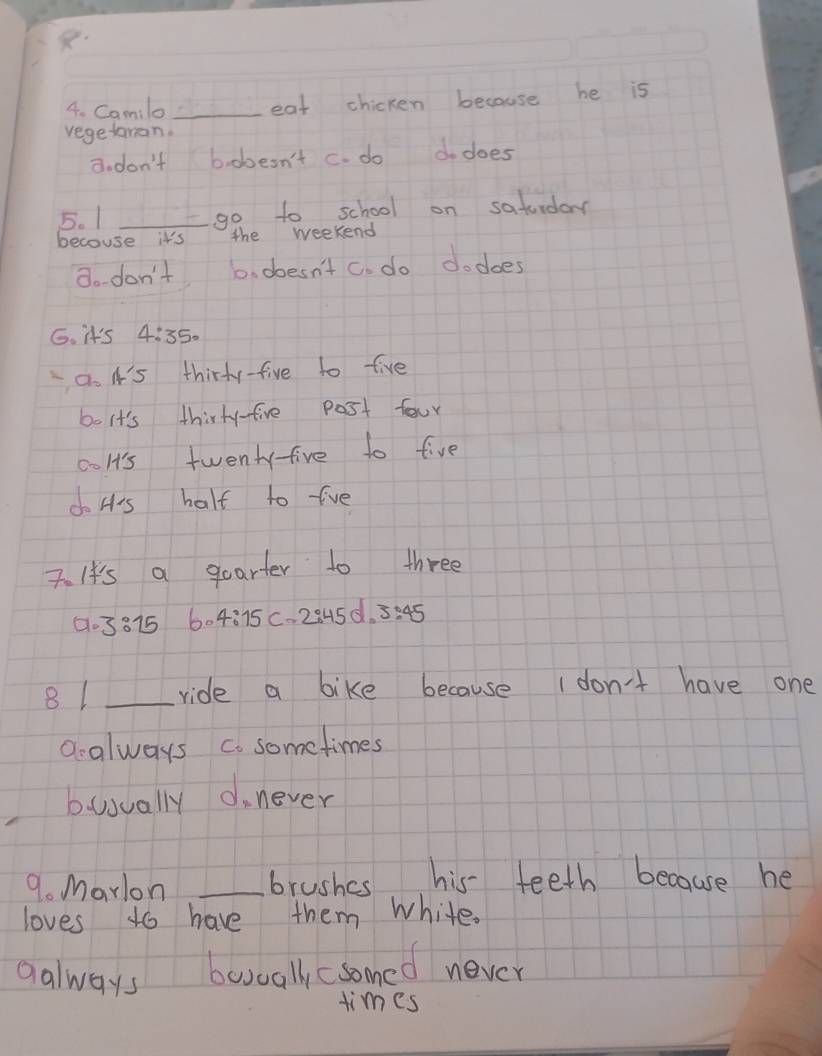 4. Camilo ______ eat chicken because he is
vegetarian.
a. don't b. doesn't c. do d. does
5. I ______ go to school on saturday
becouse it's the weekend
a. don't b. doesn't c. do d. does
6. it's 4:35.
a. It's thirty-five to five
b. It's thirty-five past four
c. It's twenty-five to five
d. It's half to five
7. It's a quarter to three
a. 3:15 b. 4:15 c. 2:45 d. 3:45
8 I ____ ride a bike because I don't have one
a. always c. sometimes
b. usually d. never
9. Marlon ____ brushes his teeth because he
loves to have them white.
a always b usually c some d never
times